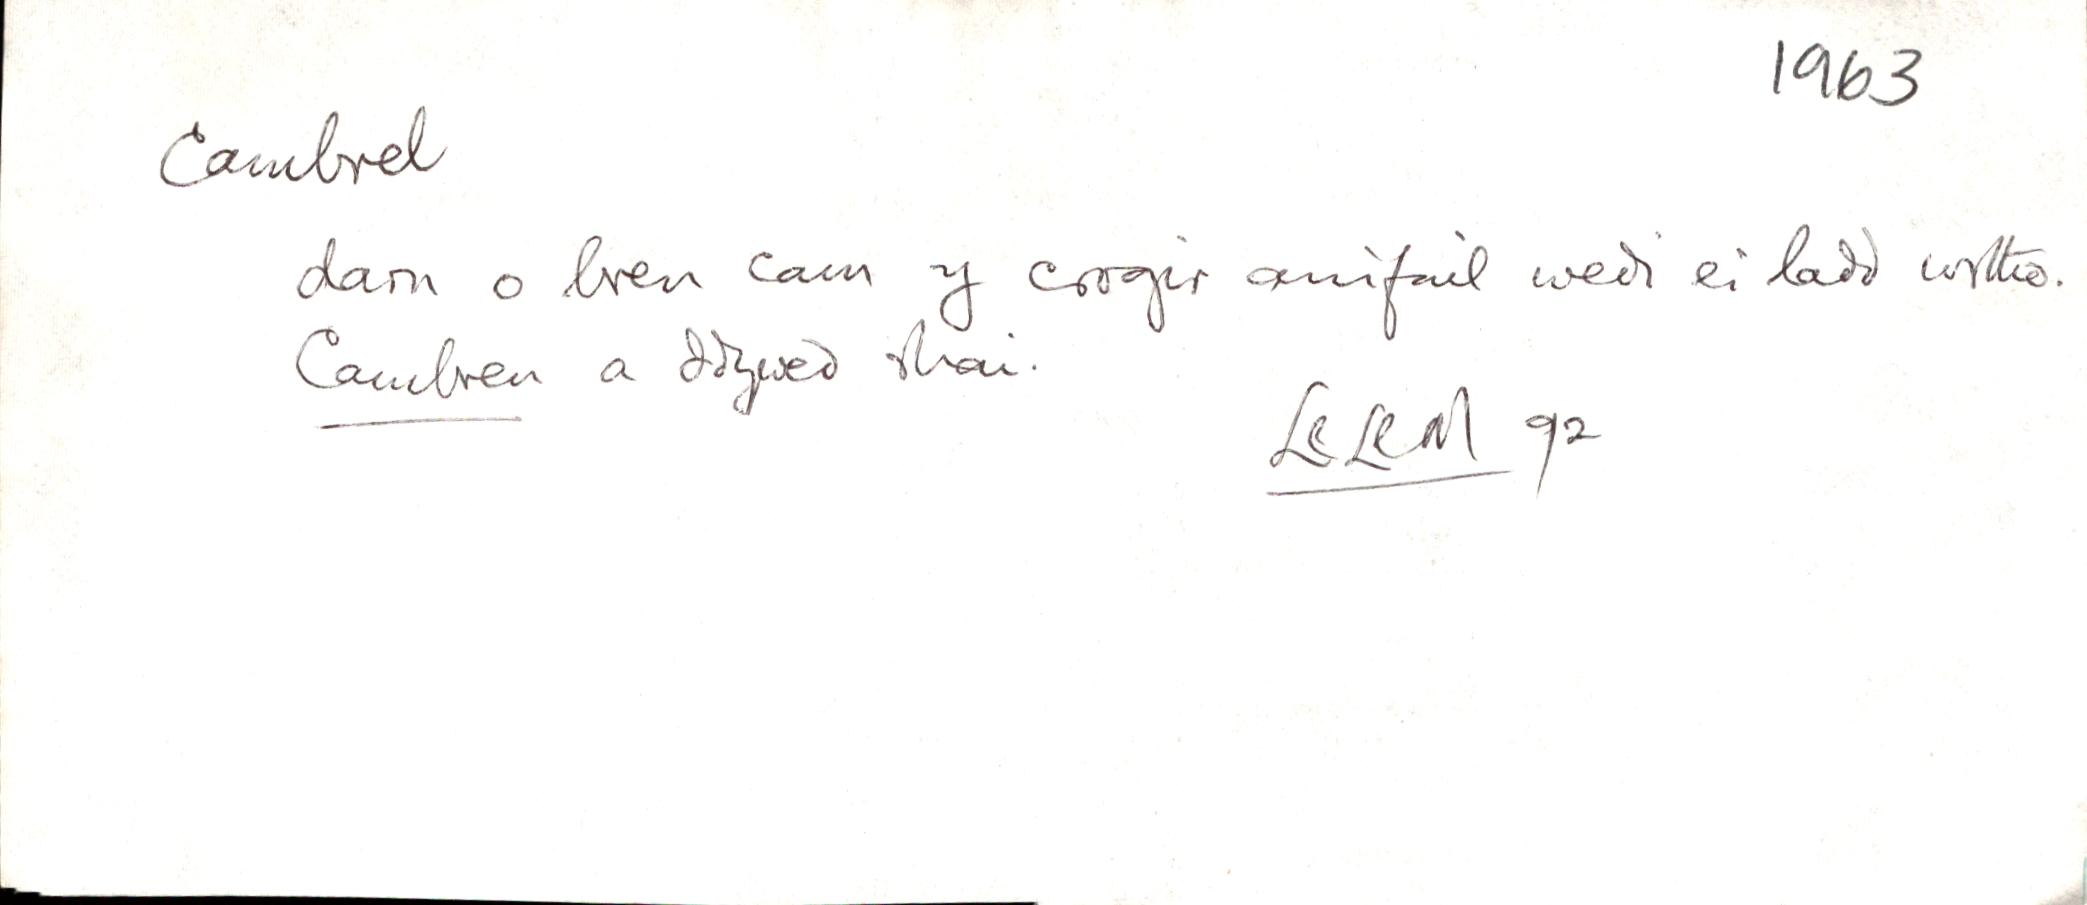 1963
Cambrel
darn o bren cam y crogir anifail wedi ei ladd wrtho.
Cambren a ddywed rhai.
LlLlM 92